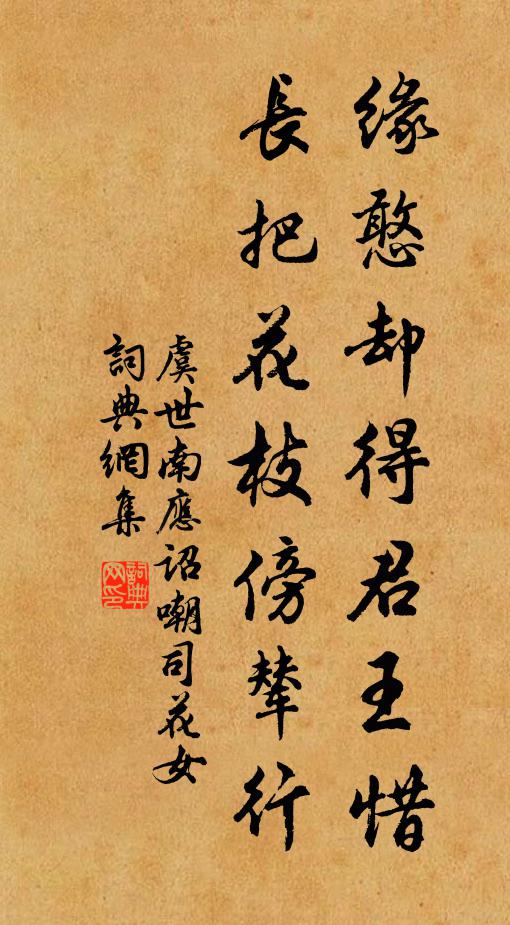 緣憨却得君王惜
長把花枝傍輦行
虞世南應詔嘲司花女
詞典網集
詞典网印